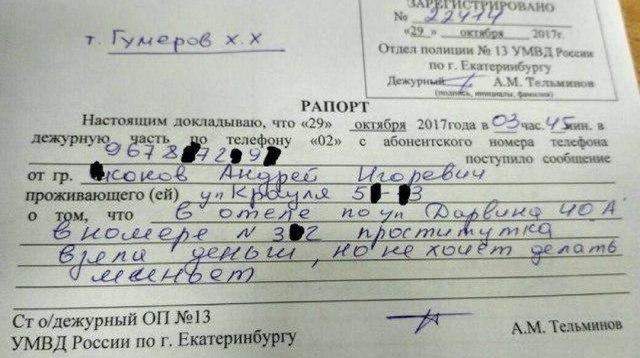 ЗАРЕГИСТРИРОВАНО
№ 22414
«29» октября 2017г.
Отдел полиции № 13 УМВД России
по г. Екатеринбургу
Дежурный А.М. Тельминов
(подпись, инициалы, фамилия)
т. Гумеров х.х
РАПОРТ
Настоящим докладываю, что «29» октября 2017года в 03 час. 45 мин. в
дежурную часть по телефону «02» с абонентского номера телефона
9678 72 9 поступило сообщение
от гр. коков Андрей Игоревич
проживающего (ей) ул Крауля 5 - 3
о том, что в отеле по ул Дарвина 40 А
в номере N 3 2 проститутка
взяла деньги, но не хочет делать
миньет
Ст о/дежурный ОП №13
УМВД России по г. Екатеринбургу А.М. Тельминов